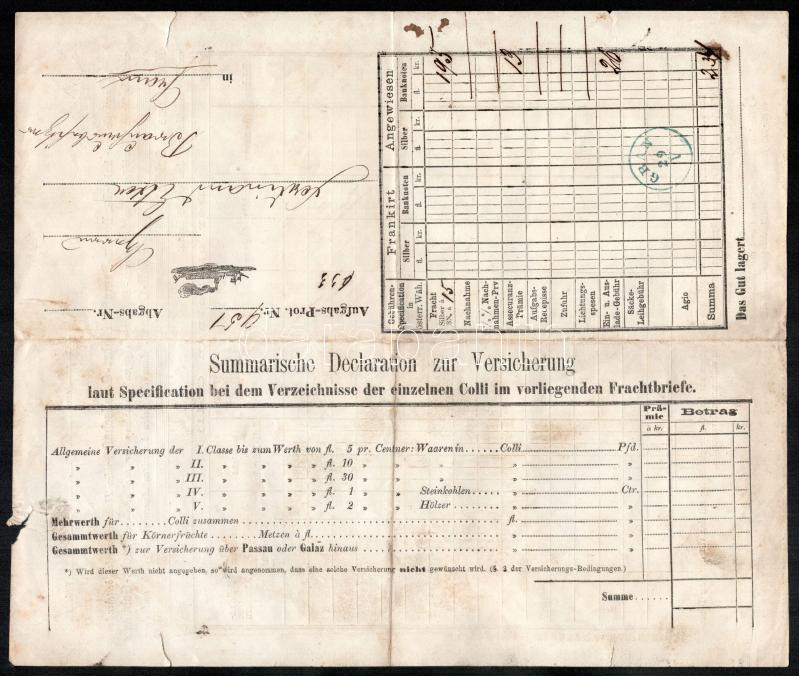 Abgabs-Nr.
Aufgabs-Prot. Nr. 951
Herrn
in
Gebühren-Specification in österr. Wäh.
Frankirt
Angewiesen
Silber
Banknoten
Silber
Banknoten
fl. kr. fl. kr. fl. kr. fl. kr.
Fracht
Silber à
15
195
Nachnahme
Nachnahmen-Prv
Assecuranz-Prämie
13
Aufgabs-Recepisse
Zufuhr
Lichtungsspesen
Ein- u. Auslade-Gebühr
20
Säcke-Leihgebühr
Agio
Summa
GRAN
Das Gut lagert
Summarische Declaration zur Versicherung
laut Specification bei dem Verzeichnisse der einzelnen Colli im vorliegenden Frachtbriefe.
Prämie Betrag
à kr. fl. kr.
Allgemeine Versicherung der I. Classe bis zum Werth von fl. 5 pr. Centner: Waaren in ...... Colli ...... Pfd.
" " " II. " " " " " fl. 10 " " " ...... " ...... "
" " " III. " " " " " fl. 30 " " " ...... " ...... "
" " " IV. " " " " " fl. 1 " " Steinkohlen ...... " ...... Ctr.
" " " V. " " " " " fl. 2 " " Hölzer ...... " ...... "
Mehrwerth für ........ Colli zusammen ...... fl. ...... "
Gesammtwerth für Körnerfrüchte ...... Metzen à fl. ...... " ...... "
Gesammtwerth *) zur Versicherung über Passau oder Galaz hinaus ...... " ...... "
*) Wird dieser Werth nicht angegeben, so wird angenommen, dass eine solche Versicherung nicht gewünscht wird. (§. 3 der Versicherungs-Bedingungen.)
Summe ......